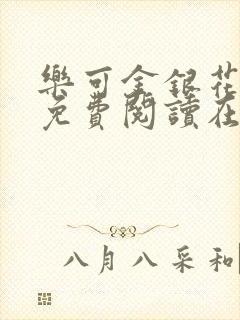 樂可金銀花
免費閱讀在
八月八采和